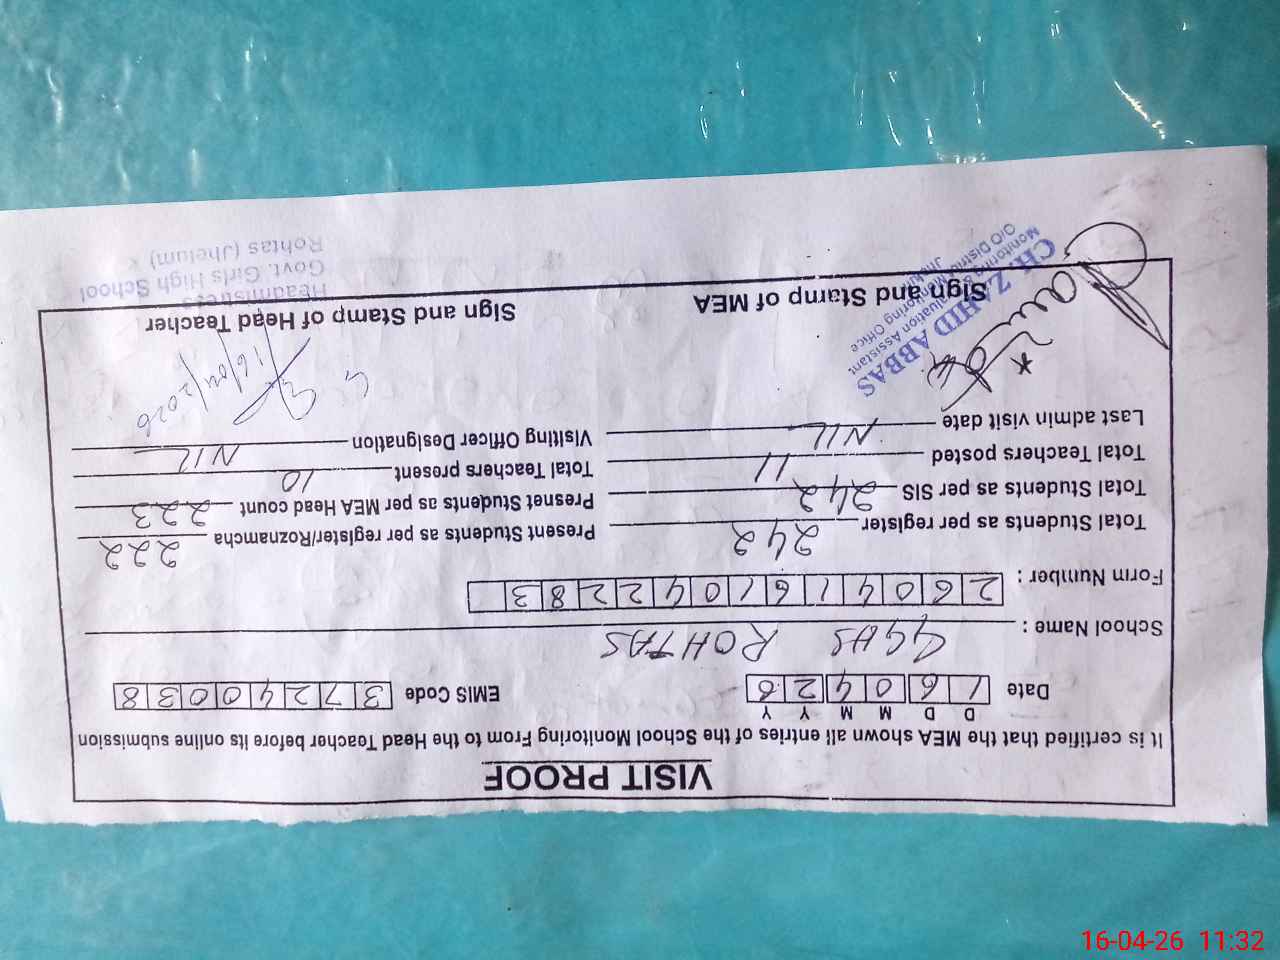 VISIT PROOF
It is certified that the MEA shown all entries of the School Monitoring From to the Head Teacher before its online submission
D D M M Y Y
Date 1 6 0 4 2 6 EMIS Code 3 7 2 4 0 0 3 8
School Name : GGHS ROHTAS
Form Number : 2 6 0 4 1 6 1 0 4 2 2 8 3
Total Students as per register 242 Present Students as per register/Roznamcha 222
Total Students as per SIS 242 Presnet Students as per MEA Head count 223
Total Teachers posted 11 Total Teachers present 10
Last admin visit date NIL Visiting Officer Designation NIL
16/04/2026
CH. ZAHID ABBAS
Monitoring & Evaluation Assistant
O/O District Monitoring Office
Sign and Stamp of MEA Sign and Stamp of Head Teacher
Headmistress
Govt. Girls High School
Rohtas (Jhelum)
16-04-26 11:32